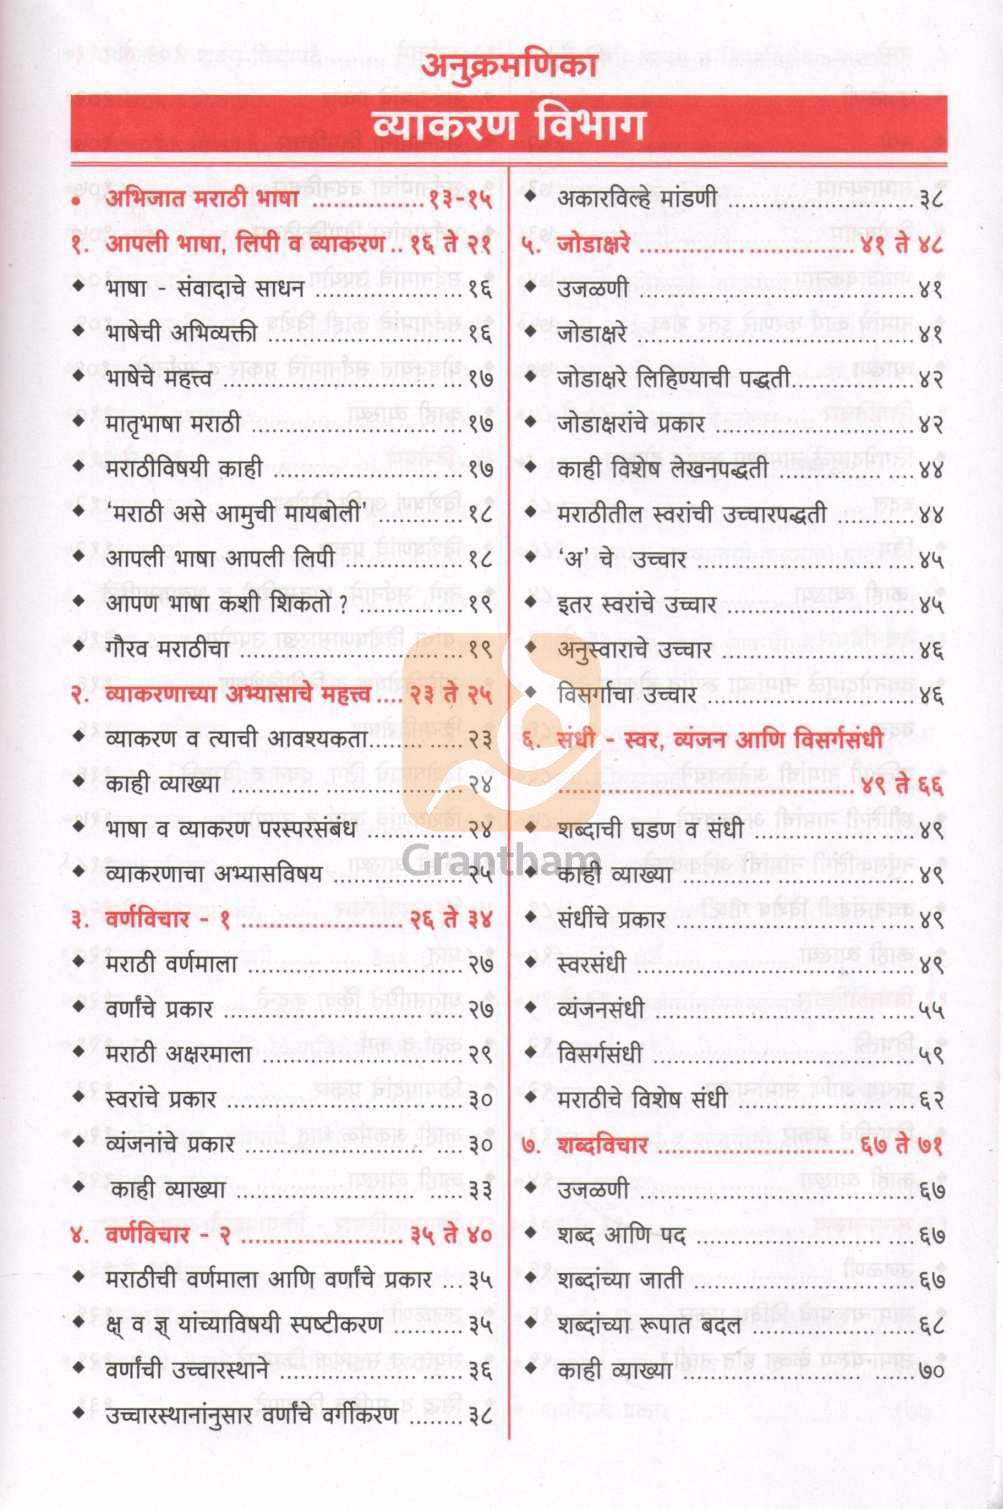 अनुक्रमणिका
व्याकरण विभाग
• अभिजात मराठी भाषा ................१३-१५
१. आपली भाषा, लिपी व व्याकरण .. १६ ते २१
◆ भाषा - संवादाचे साधन ..................... १६
◆ भाषेची अभिव्यक्ती ............................ १६
◆ भाषेचे महत्त्व .................................. १७
◆ मातृभाषा मराठी .............................. १७
◆ मराठीविषयी काही ........................... १७
◆ ‘मराठी असे आमुची मायबोली’ ............ १८
◆ आपली भाषा आपली लिपी ................ १८
◆ आपण भाषा कशी शिकतो ? ................ १९
◆ गौरव मराठीचा ................................ १९
२. व्याकरणाच्या अभ्यासाचे महत्त्व .... २३ ते २५
◆ व्याकरण व त्याची आवश्यकता............. २३
◆ काही व्याख्या ................................. २४
◆ भाषा व व्याकरण परस्परसंबंध .............. २४
◆ व्याकरणाचा अभ्यासविषय .................. २५
३. वर्णविचार - १ ....................... २६ ते ३४
◆ मराठी वर्णमाला .............................. २७
◆ वर्णांचे प्रकार ................................... २७
◆ मराठी अक्षरमाला ............................ २९
◆ स्वरांचे प्रकार .................................. ३०
◆ व्यंजनांचे प्रकार ............................... ३०
◆ काही व्याख्या ................................. ३३
४. वर्णविचार - २ ....................... ३५ ते ४०
◆ मराठीची वर्णमाला आणि वर्णांचे प्रकार ... ३५
◆ क्ष् व ज्ञ् यांच्याविषयी स्पष्टीकरण .......... ३५
◆ वर्णांची उच्चारस्थाने .......................... ३६
◆ उच्चारस्थानांनुसार वर्णांचे वर्गीकरण ........ ३८
◆ अकारविल्हे मांडणी ........................... ३८
५. जोडाक्षरे ............................... ४१ ते ४८
◆ उजळणी ........................................ ४१
◆ जोडाक्षरे ........................................ ४१
◆ जोडाक्षरे लिहिण्याची पद्धती................. ४२
◆ जोडाक्षरांचे प्रकार ............................ ४२
◆ काही विशेष लेखनपद्धती .................... ४४
◆ मराठीतील स्वरांची उच्चारपद्धती ........... ४४
◆ ‘अ’ चे उच्चार ................................ ४५
◆ इतर स्वरांचे उच्चार .......................... ४५
◆ अनुस्वाराचे उच्चार ........................... ४६
◆ विसर्गाचा उच्चार .............................. ४६
६. संधी - स्वर, व्यंजन आणि विसर्गसंधी
............................................ ४९ ते ६६
◆ शब्दाची घडण व संधी ...................... ४९
◆ काही व्याख्या ................................. ४९
◆ संधींचे प्रकार .................................. ४९
◆ स्वरसंधी ........................................ ४९
◆ व्यंजनसंधी ..................................... ५५
◆ विसर्गसंधी ..................................... ५९
◆ मराठीचे विशेष संधी ......................... ६२
७. शब्दविचार ............................ ६७ ते ७१
◆ उजळणी ........................................ ६७
◆ शब्द आणि पद ............................... ६७
◆ शब्दांच्या जाती ................................ ६७
◆ शब्दांच्या रूपात बदल ........................ ६८
◆ काही व्याख्या ................................. ७०
Grantham